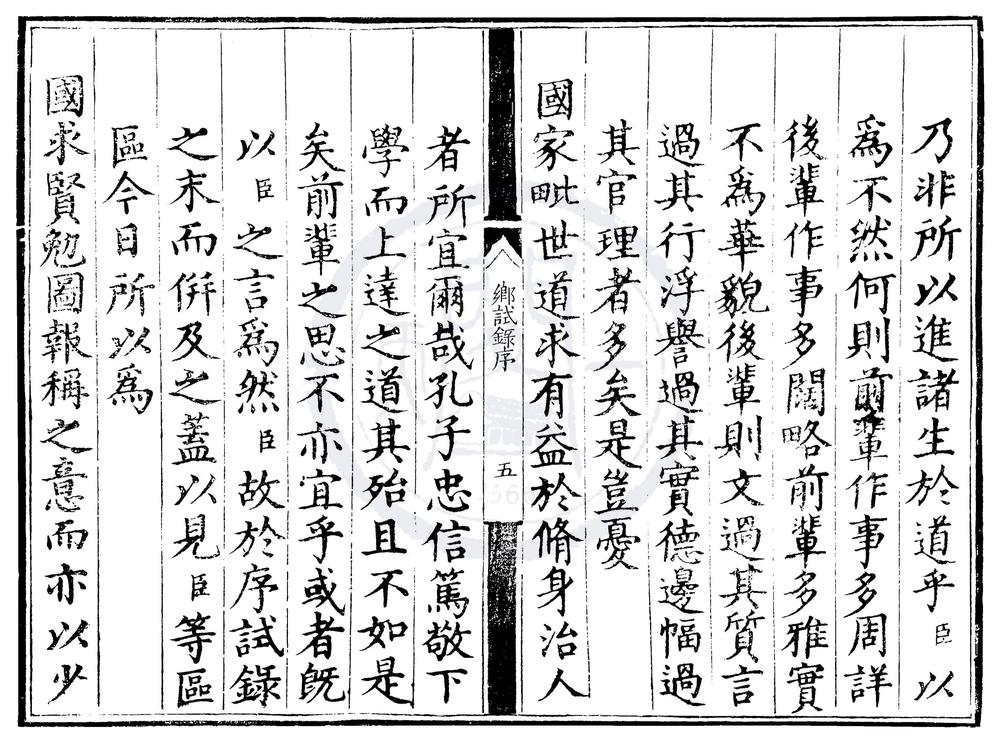 乃非所以進諸生於道乎臣以
爲不然何則前輩作事多周詳
後輩作事多闊略前輩多雅實
不爲華貌後輩則文過其質言
過其行浮譽過其實德邊幅過
其官理者多矣是豈憂
國家毗世道求有益於脩身治人
鄉試錄序
五
者所宜爾哉孔子忠信篤敬下
學而上達之道其殆且不如是
矣前輩之思不亦宜乎或者旣
以臣之言爲然臣故於序試錄
之末而併及之蓋以見臣等區
區今日所以爲
國求賢勉圖報稱之意而亦以少